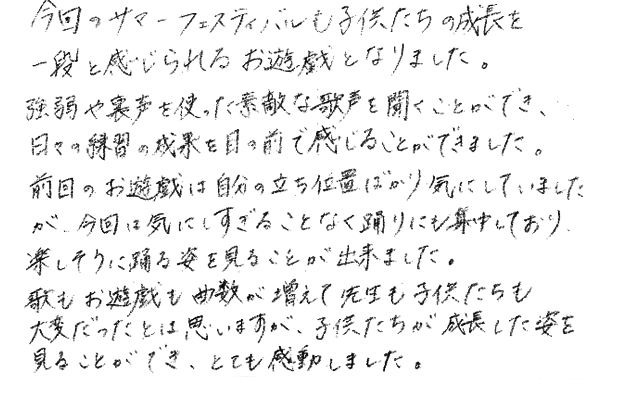 今回のサマーフェスティバルも子供たちの成長を
一段と感じられるお遊戯となりました。
強弱や裏声を使った素敵な歌声を聞くことができ、
日々の練習の成果を目の前で感じることができました。
前回のお遊戯は自分の立ち位置ばかり気にしていました
が、今回は気にしすぎることなく踊りにも集中しており、
楽しそうに踊る姿を見ることが出来ました。
歌もお遊戯も曲数が増えて先生も子供たちも
大変だったとは思いますが、子供たちが成長した姿を
見ることができ、とても感動しました。